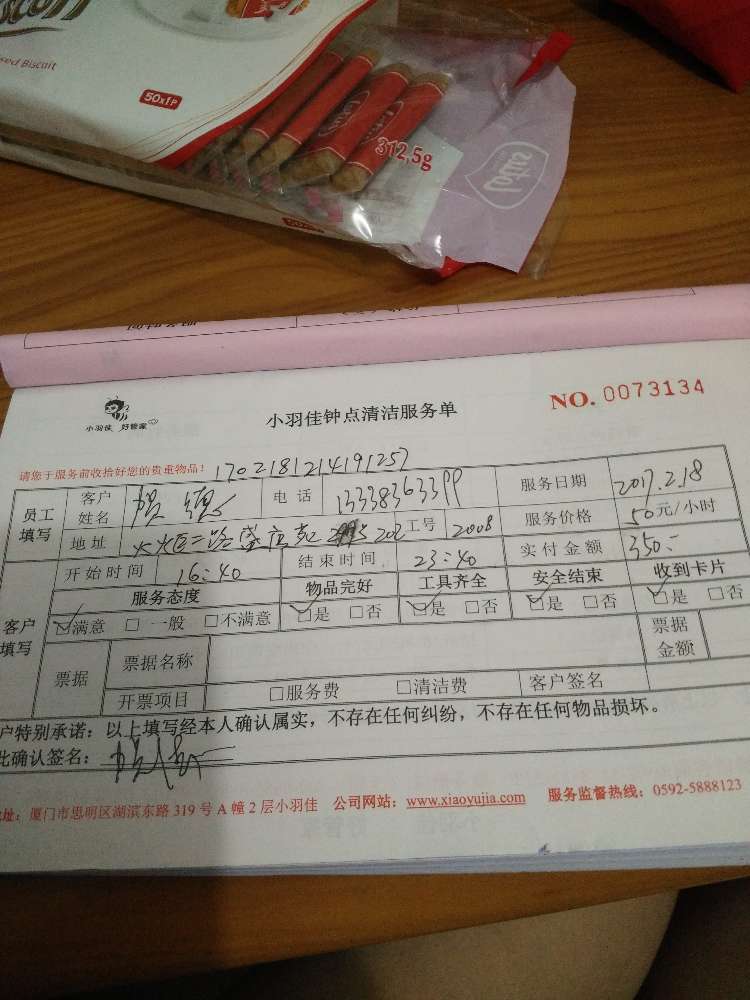 sed Biscuit
50x1P
Lotus
312,5g
Lotus
小羽佳 好管家
小羽佳钟点清洁服务单
NO. 0073134
请您于服务前收拾好您的贵重物品! 1702181214191257
员工填写 客户姓名 电话 服务日期 2017.2.18
地址 202 工号 2008 服务价格 50元/小时
开始时间 16:40 结束时间 23:40 实付金额 350.-
客户填写 服务态度 物品完好 工具齐全 安全结束 收到卡片
☑满意 □一般 □不满意 ☑是 □否 ☑是 □否 ☑是 □否 ☑是 □否
票据 票据名称 票据金额
开票项目 □服务费 □清洁费 客户签名
户特别承诺：以上填写经本人确认属实，不存在任何纠纷，不存在任何物品损坏。
此确认签名：
地址：厦门市思明区湖滨东路319号A幢2层小羽佳 公司网站：www.xiaoyujia.com 服务监督热线：0592-5888123